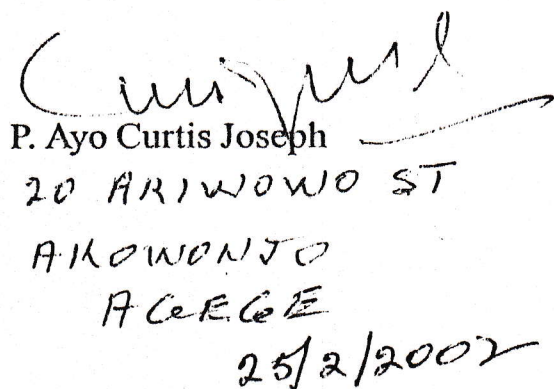 P. Ayo Curtis Joseph
20 ARIWOWO ST
AKOWONJO
AGEGE
25/2/2002